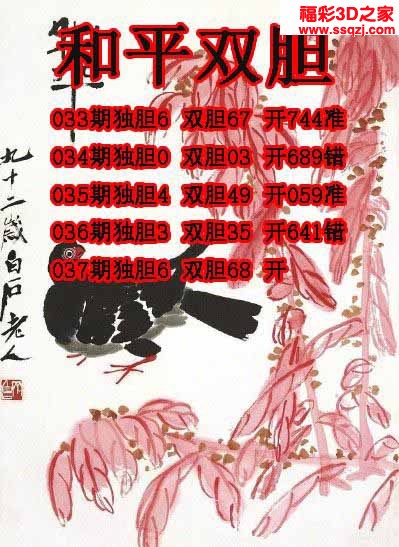 福彩3D之家
www.ssqzj.com
和平双胆
033期独胆6 双胆67 开744准
034期独胆0 双胆03 开689错
035期独胆4 双胆49 开059准
036期独胆3 双胆35 开641错
037期独胆6 双胆68 开
九十二岁白石老人